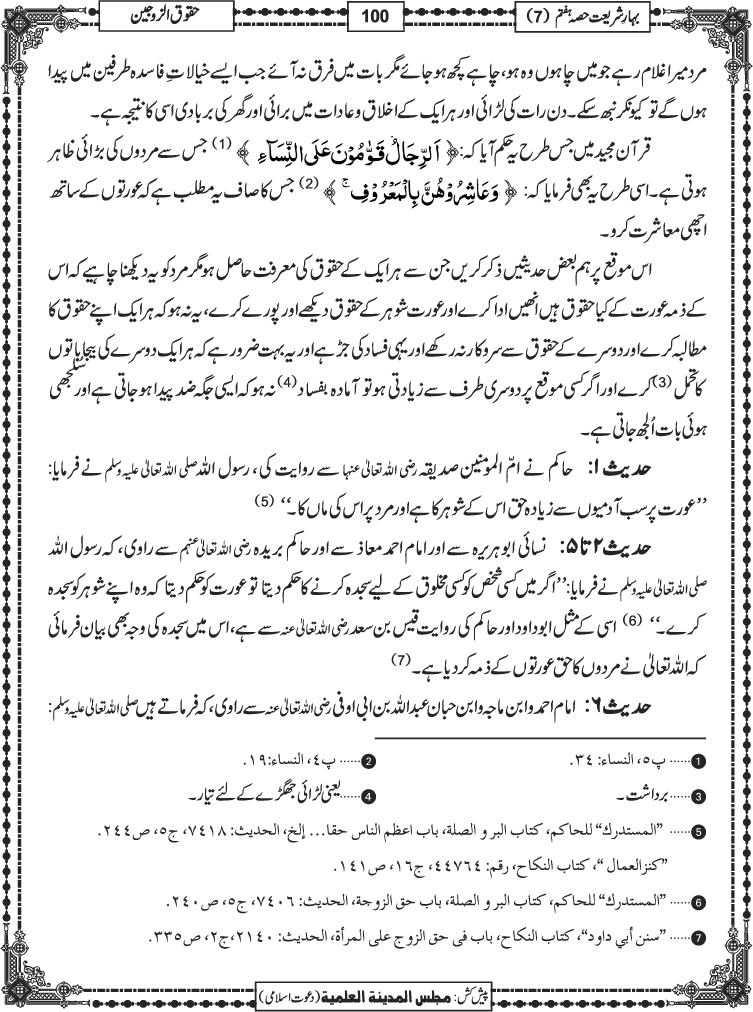 بہارِ شریعت حصہ ہفتم (7)
100
حقوق الزوجین
مرد میرا غلام رہے جو میں چاہوں وہ ہو، چاہے کچھ ہو جائے مگر بات میں فرق نہ آئے جب ایسے خیالاتِ فاسدہ طرفین میں پیدا
ہوں گے تو کیونکر نبھ سکے۔ دن رات کی لڑائی اور ہر ایک کے اخلاق و عادات میں برائی اور گھر کی بربادی اسی کا نتیجہ ہے۔
قرآن مجید میں جس طرح یہ حکم آیا کہ: ﴿ اَلرِّجَالُ قَوّٰمُوْنَ عَلَى النِّسَآءِ ﴾ (1) جس سے مردوں کی بڑائی ظاہر
ہوتی ہے۔ اسی طرح یہ بھی فرمایا کہ: ﴿ وَعَاشِرُوْهُنَّ بِالْمَعْرُوْفِ ۚ ﴾ (2) جس کا صاف یہ مطلب ہے کہ عورتوں کے ساتھ
اچھی معاشرت کرو۔
اس موقع پر ہم بعض حدیثیں ذکر کریں جن سے ہر ایک کے حقوق کی معرفت حاصل ہو مگر مرد کو یہ دیکھنا چاہیے کہ اس
کے ذمہ عورت کے کیا حقوق ہیں انھیں ادا کرے اور عورت شوہر کے حقوق دیکھے اور پورے کرے، یہ نہ ہو کہ ہر ایک اپنے حقوق کا
مطالبہ کرے اور دوسرے کے حقوق سے سروکار نہ رکھے اور یہی فساد کی جڑ ہے اور یہ بہت ضرور ہے کہ ہر ایک دوسرے کی بیجا باتوں
کا تحمل (3) کرے اور اگر کسی موقع پر دوسری طرف سے زیادتی ہو تو آمادہ بفساد (4) نہ ہو کہ ایسی جگہ ضد پیدا ہو جاتی ہے اور سُلجھی
ہوئی بات اُلجھ جاتی ہے۔
حدیث ۱: حاکم نے امّ المومنین صدیقہ رضی اللہ تعالیٰ عنہا سے روایت کی، رسول اللہ صلی اللہ تعالیٰ علیہ وسلم نے فرمایا:
’’عورت پر سب آدمیوں سے زیادہ حق اس کے شوہر کا ہے اور مرد پر اس کی ماں کا۔‘‘ (5)
حدیث ۲ تا ۵: نسائی ابوہریرہ سے اور امام احمد معاذ سے اور حاکم بریدہ رضی اللہ تعالیٰ عنہم سے راوی، کہ رسول اللہ
صلی اللہ تعالیٰ علیہ وسلم نے فرمایا: ’’اگر میں کسی شخص کو کسی مخلوق کے لیے سجدہ کرنے کا حکم دیتا تو عورت کو حکم دیتا کہ وہ اپنے شوہر کو سجدہ
کرے۔‘‘ (6) اسی کے مثل ابوداود اور حاکم کی روایت قیس بن سعد رضی اللہ تعالیٰ عنہ سے ہے، اس میں سجدہ کی وجہ بھی بیان فرمائی
کہ اللہ تعالیٰ نے مردوں کا حق عورتوں کے ذمہ کر دیا ہے۔ (7)
حدیث ۶: امام احمد و ابن ماجہ و ابن حبان عبداللہ بن ابی اوفی رضی اللہ تعالیٰ عنہ سے راوی، کہ فرماتے ہیں صلی اللہ تعالیٰ علیہ وسلم:
1 ...... پ٥، النساء: ٣٤.
2 ...... پ٤، النساء: ١٩.
3 ...... برداشت۔
4 ...... یعنی لڑائی جھگڑے کے لئے تیار۔
5 ...... ”المستدرك“ للحاكم، كتاب البر و الصلة، باب اعظم الناس حقا... إلخ، الحديث: ٧٤١٨، ج٥، ص٢٤٤.
”كنزالعمال“، كتاب النكاح، رقم: ٤٤٧٦٤، ج١٦، ص١٤١.
6 ...... ”المستدرك“ للحاكم، كتاب البر و الصلة، باب حق الزوجة، الحديث: ٧٤٠٦، ج٥، ص٢٤٠.
7 ...... ”سنن أبي داود“، كتاب النكاح، باب فى حق الزوج على المرأة، الحديث: ٢١٤٠، ج٢، ص٣٣٥.
پیش کش: مجلس المدينة العلمية (دعوت اسلامی)